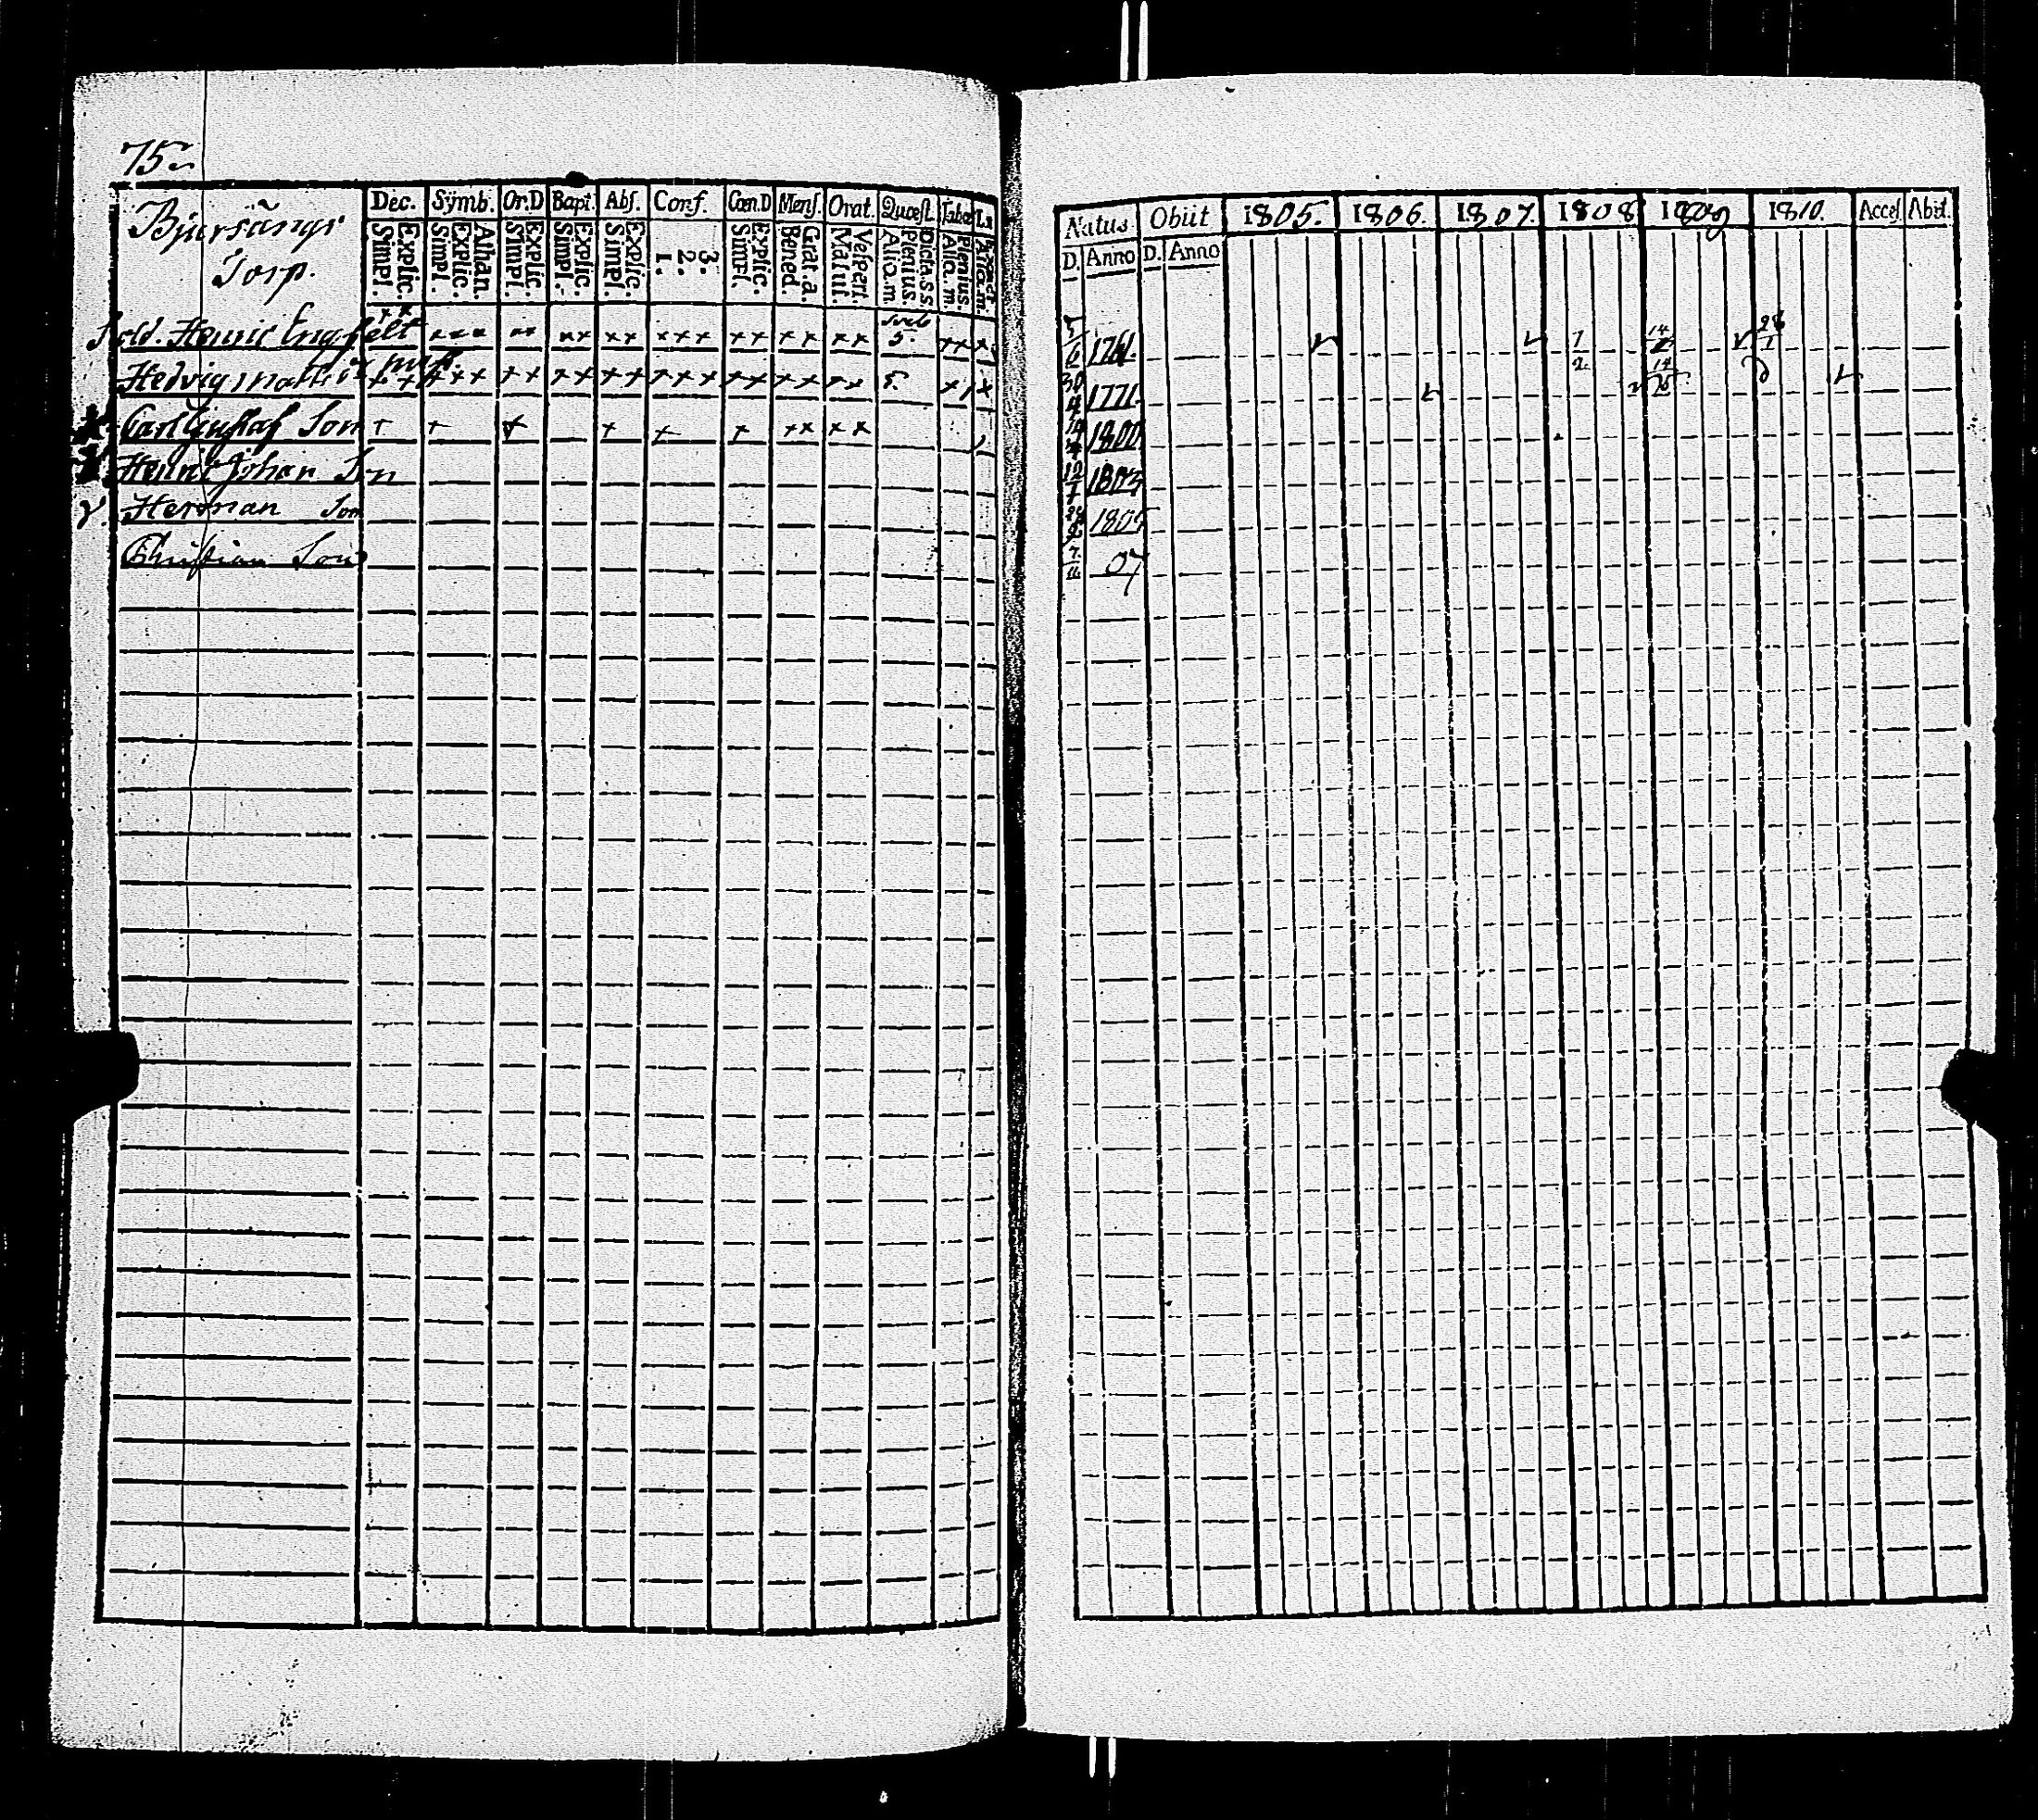 75
Bjursängs
Torp.
Dec. Symb. Or.D Bapt. Abs. Conf. Cœn.D Mens. Orat. Quæst. Taba
Explic. Simpl. Athan. Explic. Simpl. Explic. Simpl. Explic. Simpl. Explic. Simpl. 3. 2. 1. Explic. Simpl. Grat.a. Bened. Vespert. Matut. Dicta.s.s. Plenius. Aliq.m. Plenius Aliq.m.
Sold. Henric Engfelt x x x x x x x x x x x x x x x x x x x x 5. x x x
Hedvig Matts x x x x x x x x x x x x x x x x x x x x 5. x x x
Carl Gustaf Son + + + + + + x x x x
Henric Johan Son
Herman Son
Christian Son
Natus Obiit 1805. 1806. 1807. 1808 1809 1810. Acces. Abit.
D. Anno D. Anno
5/6 1761. 1/2 14 28/1
30/4 1771. 14
1800
12 1803
1805
7/11 07